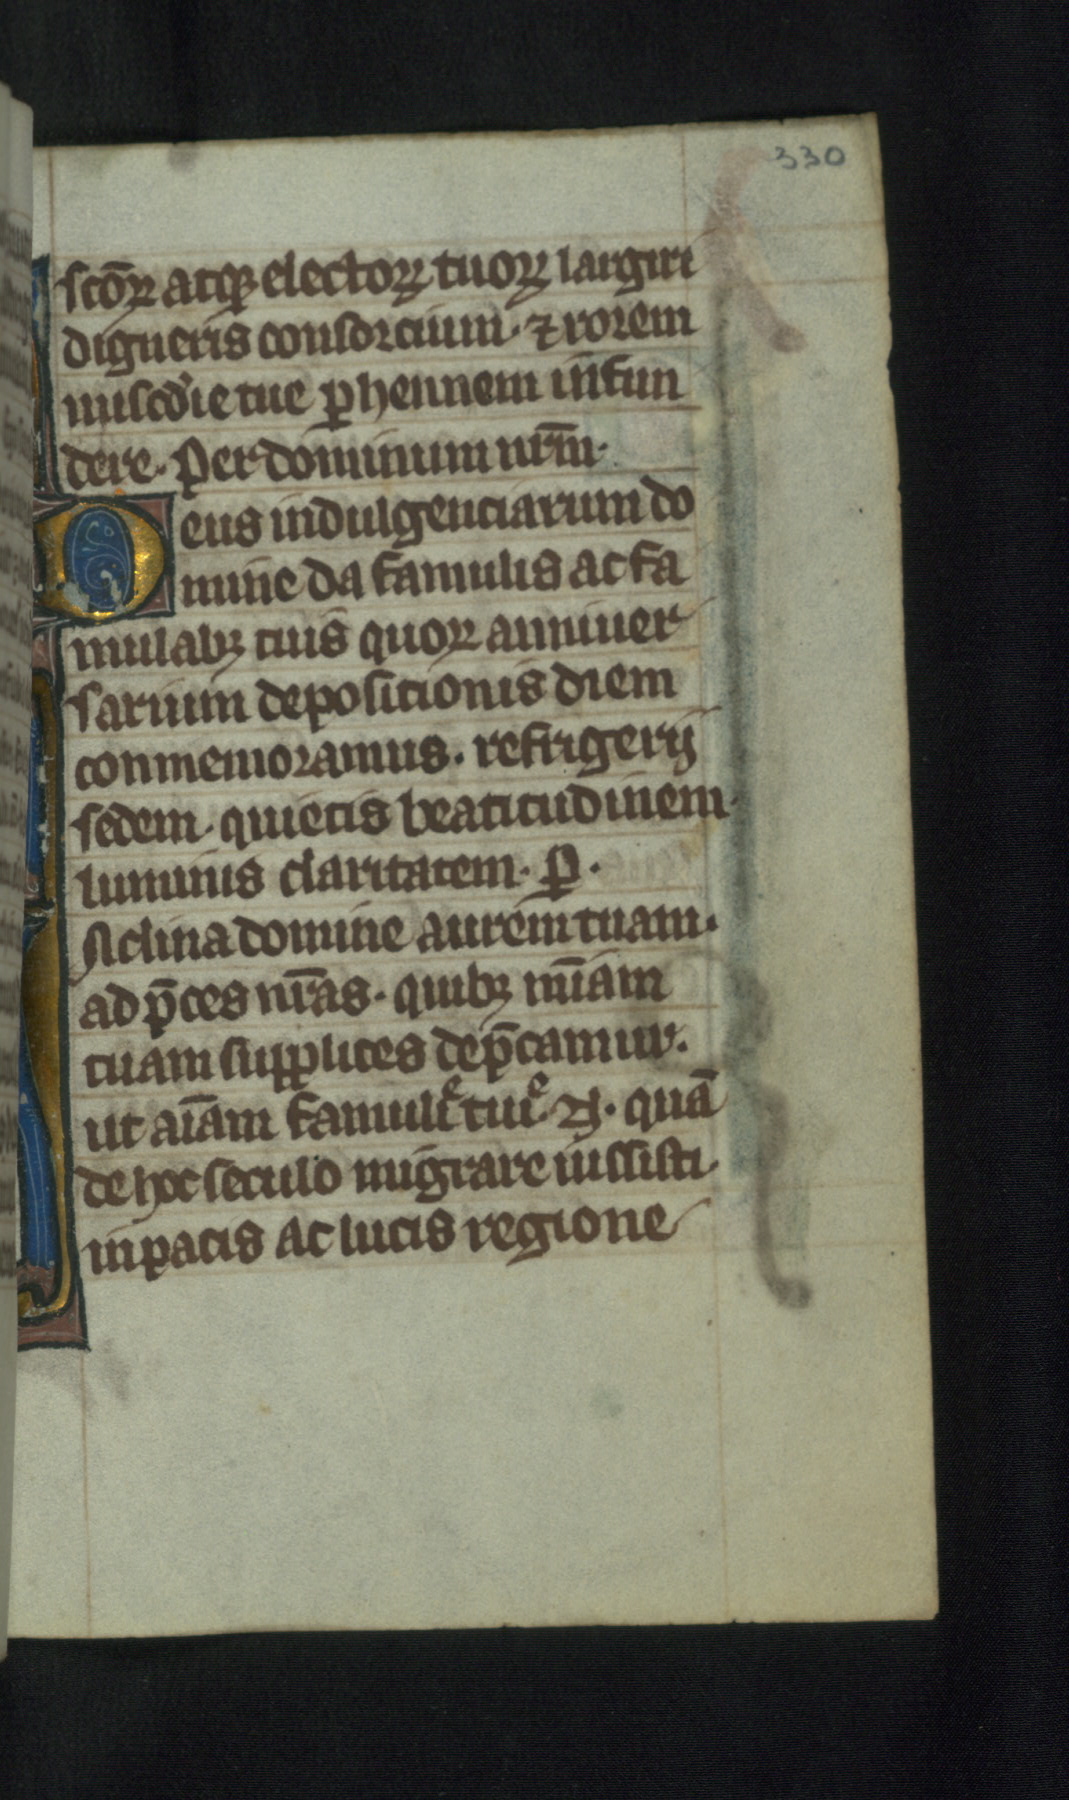 330
scōꝝ atqꝫ electoꝝ tuoꝝ largiri
digneris consorcium· ⁊ rorem
miscd'ie tue ꝑhennem infun
dere· Per dominum nr̄m·
Deus indulgenciarum do
mine da famulis ac fa
mulabꝫ tuis quoꝝ anniuer
sarium deposicionis diem
conmemoramus· refrigerij
sedem· quietis beatitudinem·
luminis claritatem· P̲·
Nclina domine aurem tuam·
ad p̄ces nr̄as· quibꝫ mīam
tuam supplices dep̄camur·
ut aīam famuliͤ tuiͤ· N· quā
de hoc seculo migrare iussisti·
in pacis ac lucis regione